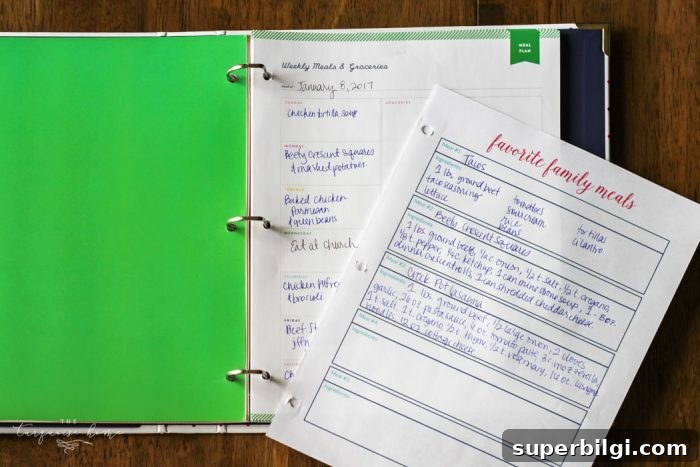 MEAL
PLAN
Weekly Meals & Groceries
January 8, 2017
SUNDAY
GROCERIES
Chicken tortilla soup
MONDAY
Beefy Crescent Squares
& mashed potatoes
TUESDAY
Baked Chicken
Parmesan
& green beans
WEDNESDAY
Eat at Church
THURSDAY
Chicken
& broccoli
FRIDAY
Beef
favorite family meals
Meal #1: Tacos
Ingredients:
1 lbs ground beef
taco seasoning
lettuce
tomatoes
sour cream
rice
beans
tortillas
cilantro
Meal #2: Beefy Crescent Squares
Ingredients:
1 lbs ground beef, 1/4 c onion, 1/2 t salt, 1/2 t oregano
1/4 t pepper, 1/4 c ketchup, 1 can mushroom soup, 1 - 8 oz.
dinner crescent rolls, 1 can shredded cheddar cheese
Meal #3: Crock Pot Lasagna
Ingredients:
1 lbs. ground beef, 1/2 large onion, 2 cloves
garlic, 24 oz pasta sauce, 6 oz. tomato paste, mozzerella
1 t salt, 1 t. oregano, 1/2 t thyme, 1/2 t. rosemary, 16 oz. lasagna
noodles, 15 oz cottage cheese
Meal #4:
Ingredients:
Meal #5:
Ingredients:
THE
Turquoise Home
superbilgi.com